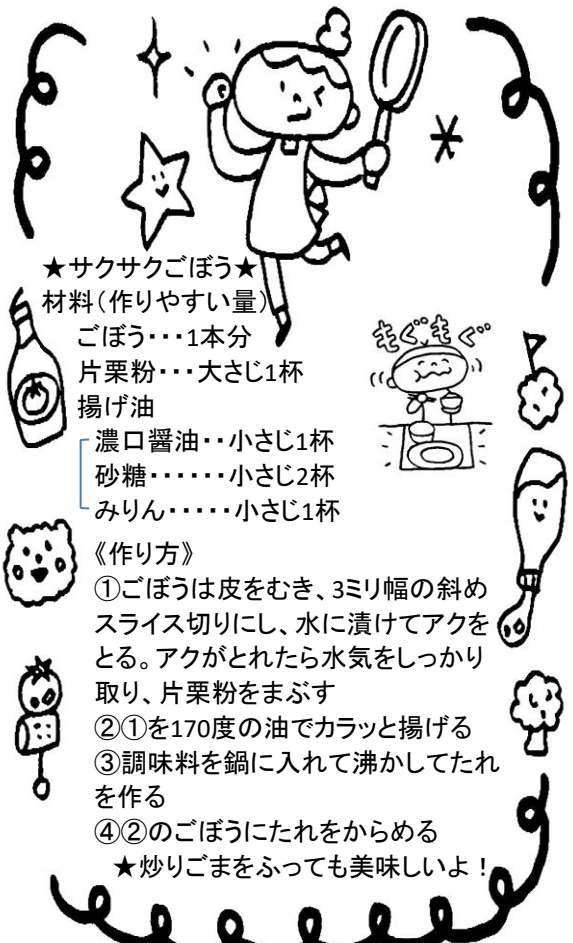 ★サクサクごぼう★
材料(作りやすい量)
ごぼう・・・1本分
片栗粉・・・大さじ1杯
揚げ油
濃口醤油・・小さじ1杯
砂糖・・・・・・小さじ2杯
みりん・・・・・小さじ1杯
もぐもぐ
《作り方》
①ごぼうは皮をむき、3ミリ幅の斜め
スライス切りにし、水に漬けてアクを
とる。アクがとれたら水気をしっかり
取り、片栗粉をまぶす
②①を170度の油でカラッと揚げる
③調味料を鍋に入れて沸かしてたれ
を作る
④②のごぼうにたれをからめる
★炒りごまをふっても美味しいよ!